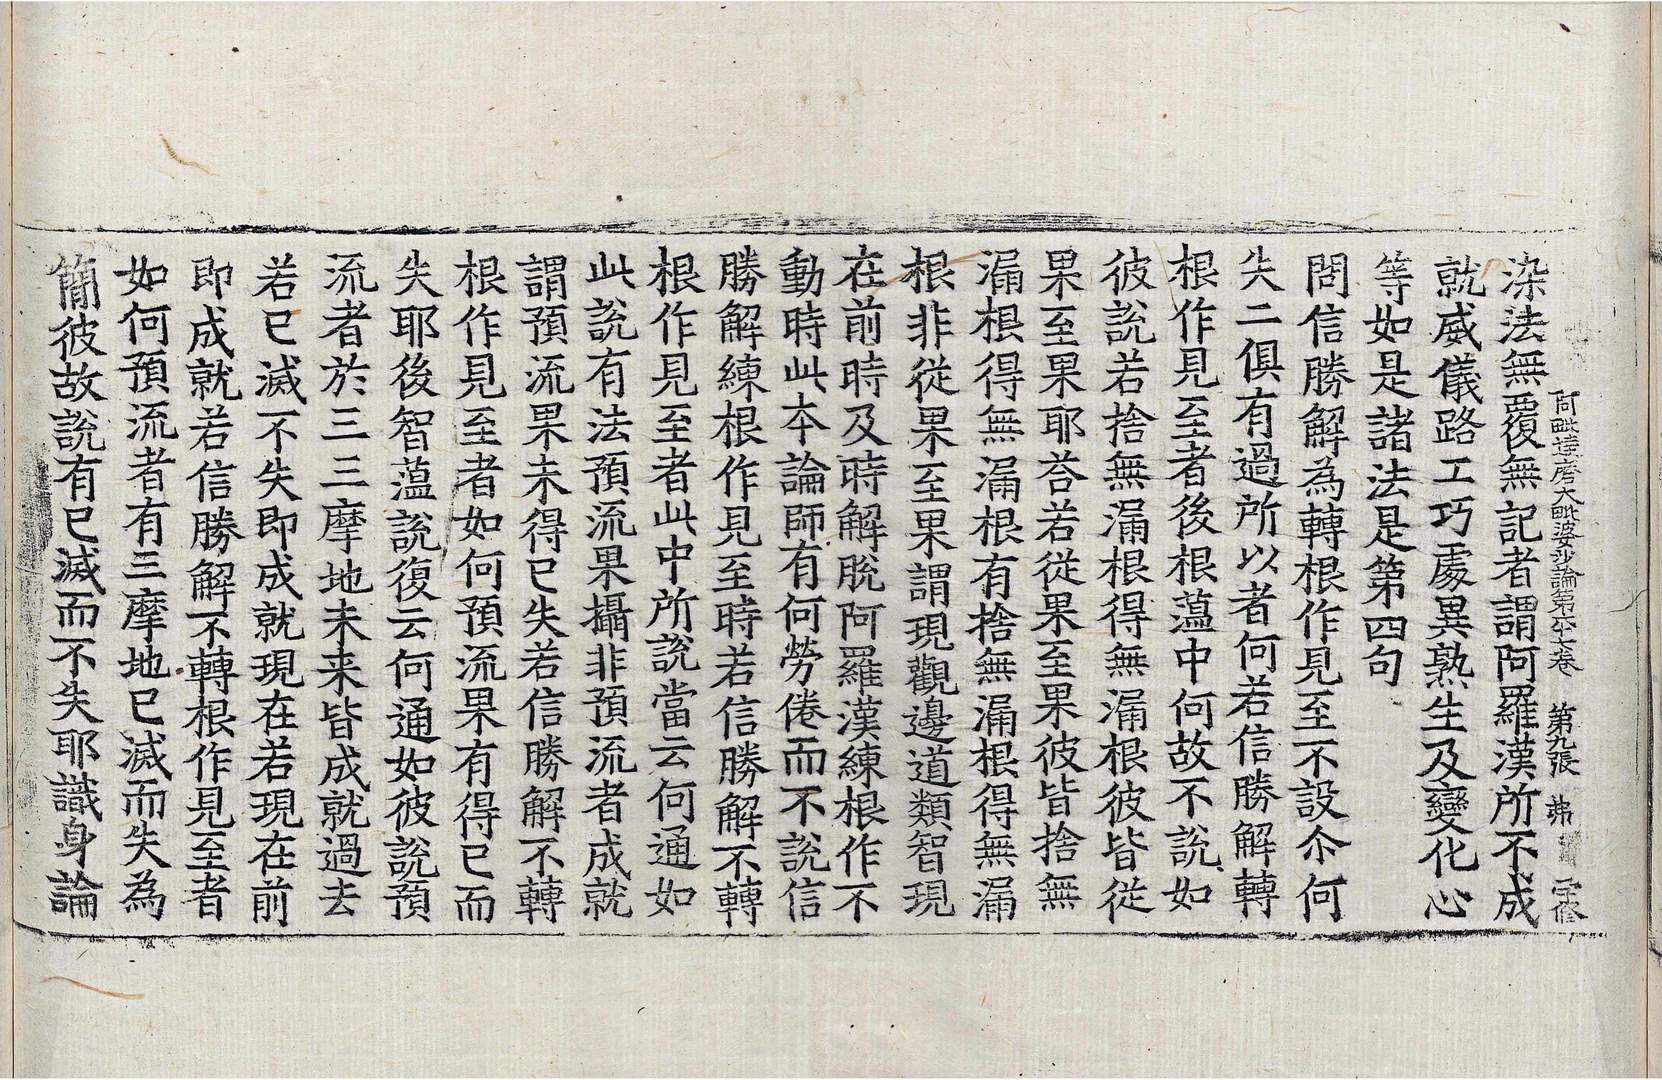 阿毗達磨大毗婆沙論第六十一卷 第九張 弗
染法無覆無記者謂阿羅漢所不成
就威儀路工巧處異熟生及變化心
等如是諸法是第四句
問信勝解為轉根作見至不設尒何
失二俱有過所以者何若信勝解轉
根作見至者後根蘊中何故不說如
彼說若捨無漏根得無漏根彼皆從
果至果耶荅若從果至果彼皆捨無
漏根得無漏根有捨無漏根得無漏
根非從果至果謂現觀邊道類智現
在前時及時解脫阿羅漢練根作不
動時此本論師有何勞倦而不說信
勝解練根作見至時若信勝解不轉
根作見至者此中所說當云何通如
此說有法預流果攝非預流者成就
謂預流果未得已失若信勝解不轉
根作見至者如何預流果有得已而
失耶後智蘊說復云何通如彼說預
流者於三三摩地未来皆成就過去
若已滅不失即成就現在若現在前
即成就若信勝解不轉根作見至者
如何預流者有三摩地已滅而失為
簡彼故說有已滅而不失耶識身論